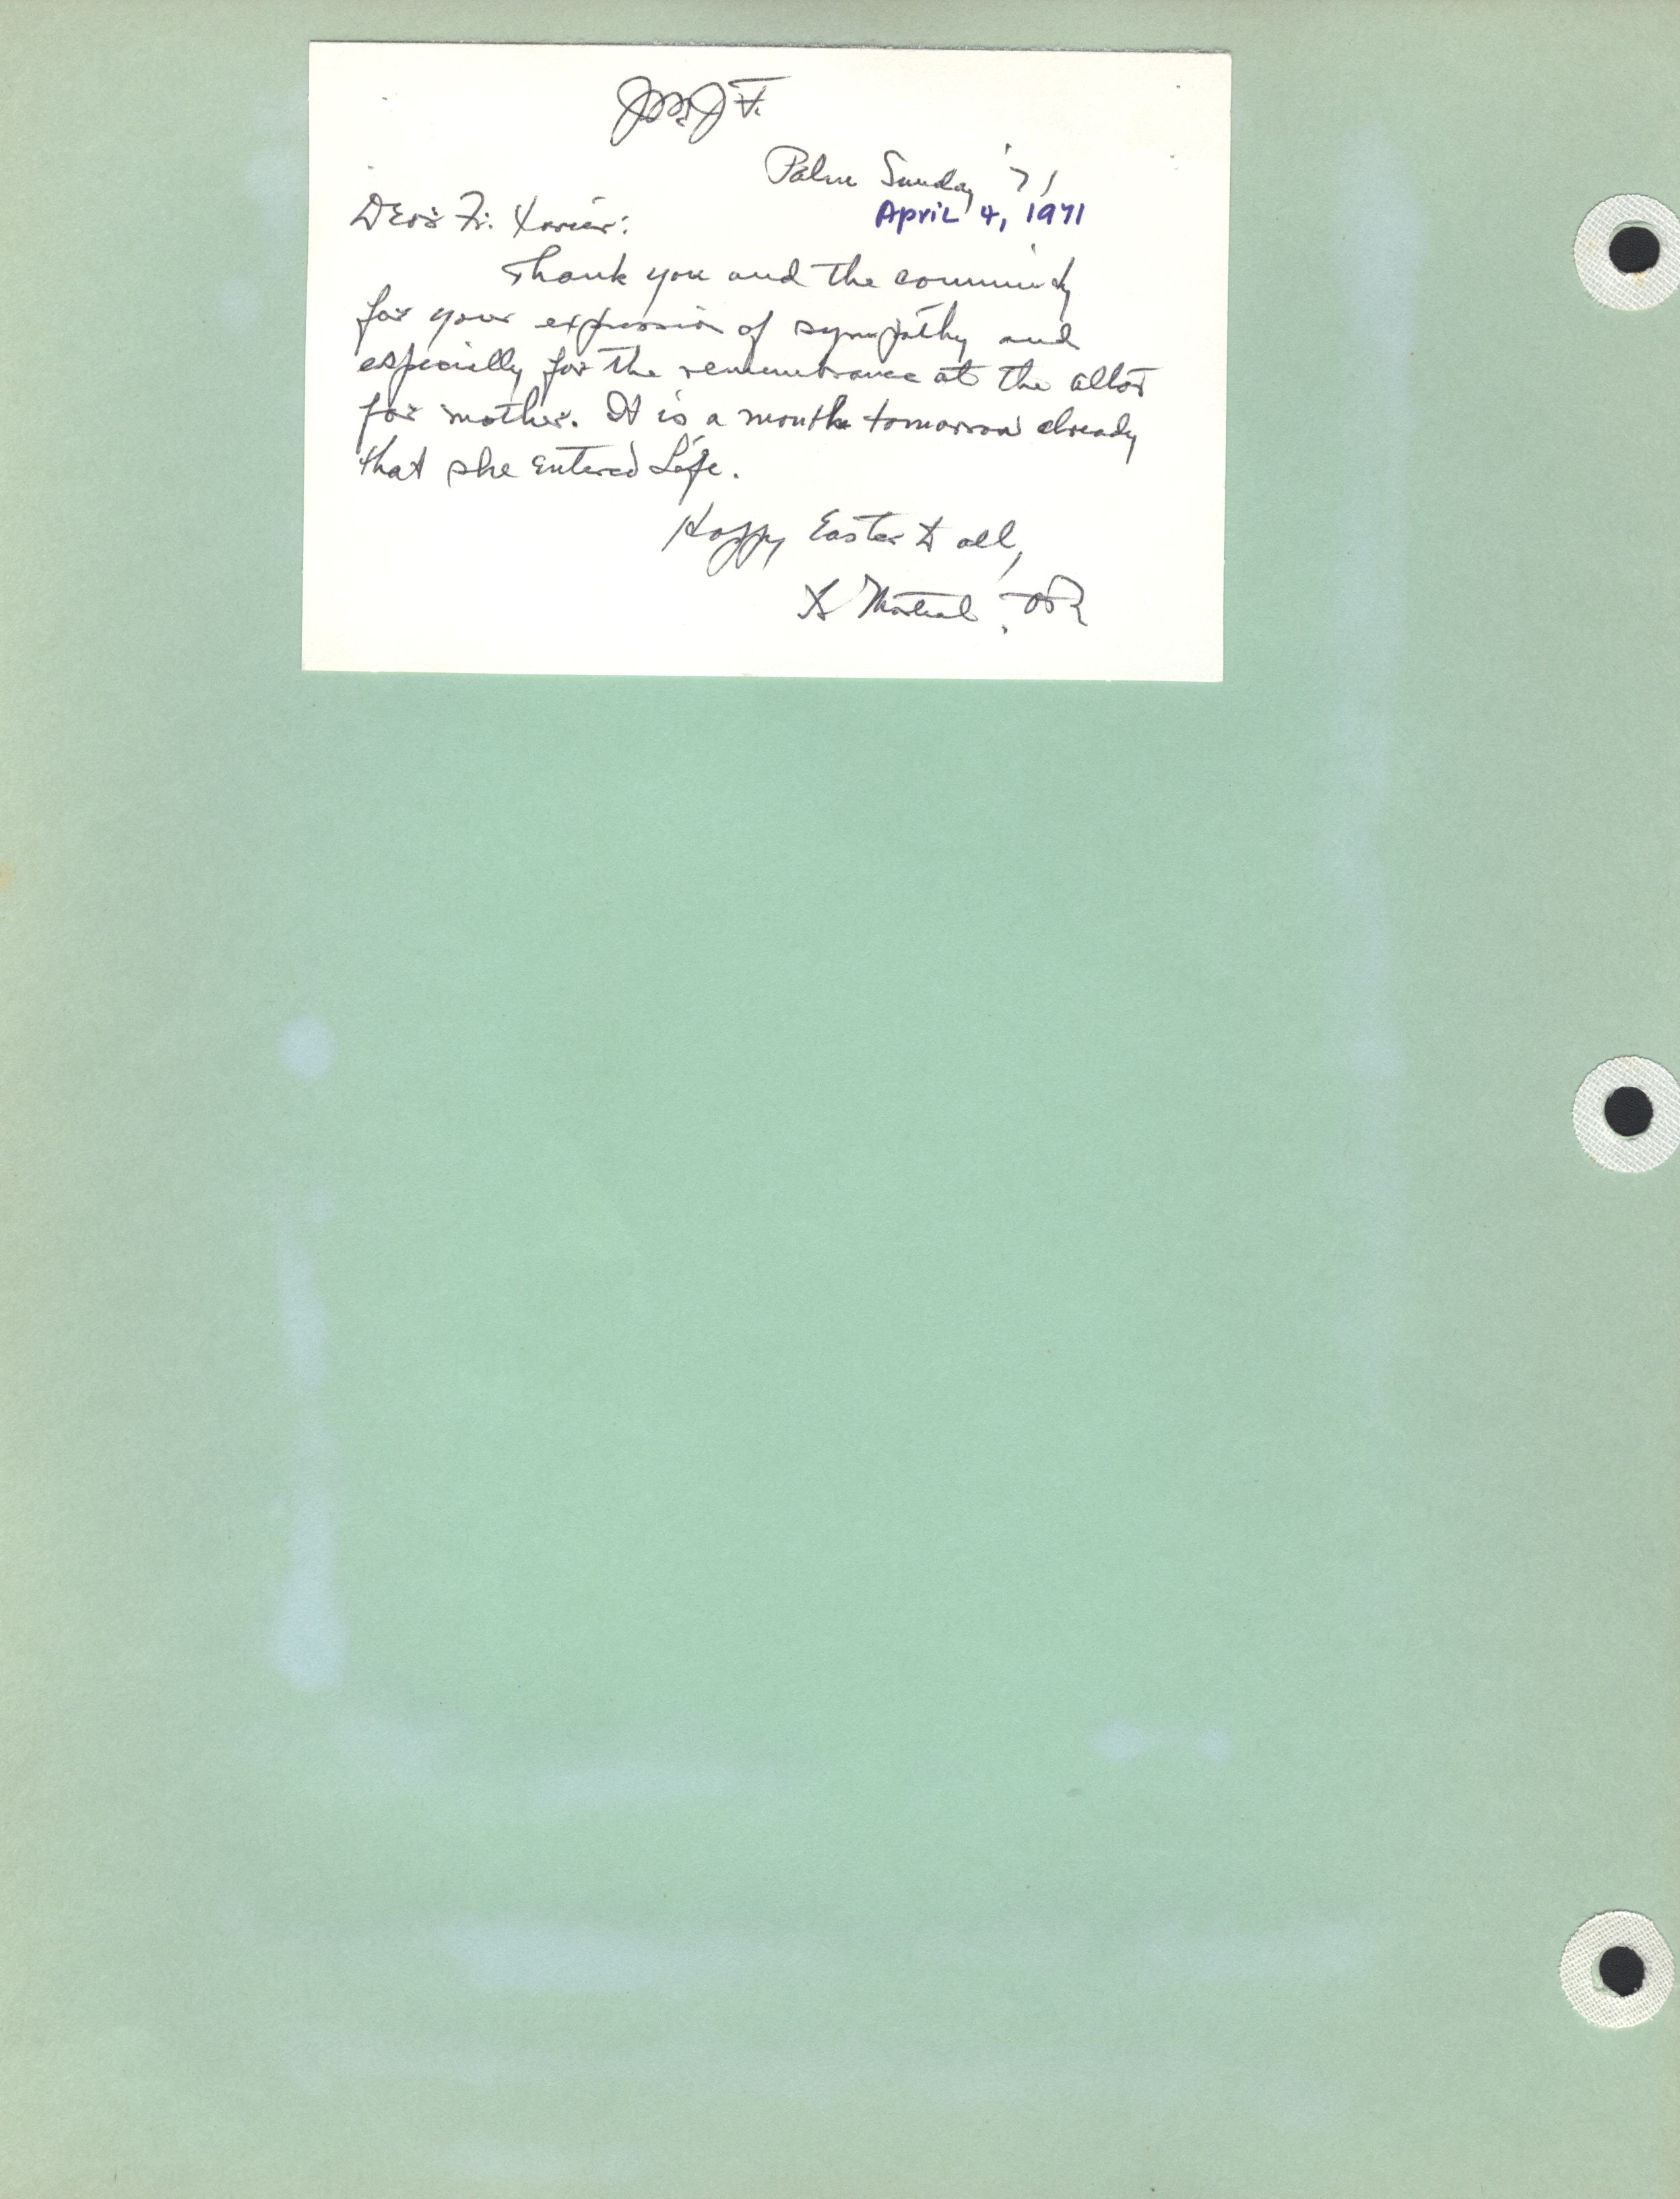 JMJF.
Palm Sunday '71
April 4, 1971
Dear Fr. Xavier:
Thank you and the community
for your expression of sympathy and
especially for the remembrance at the altar
for mother. It is a month tomorrow already
that she entered Life.
Happy Easter to all,